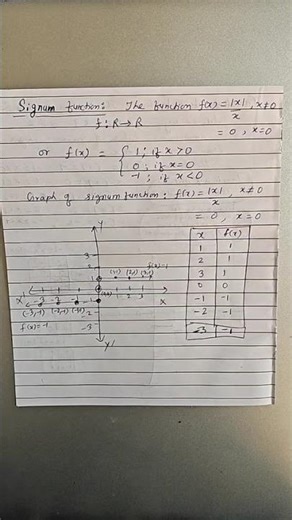 Signum function: The function f(x) = |x|/x, x≠0
f: R→R = 0, x=0
or f(x) = { 1; if x>0
0; if x=0
-1; if x<0
Graph of signum function: f(x) = |x|/x, x≠0
= 0, x=0
Y
x f(x)
1 1
2 1
3 1
0 0
-1 -1
-2 -1
-3 -1
3
2
1
(1,1) (2,1) (3,1) f(x)=1
X' -3 -2 -1 1 2 3 X
(-3,-1) (-2,-1) (-1,-1)
f(x)=-1
-2
-3
Y'